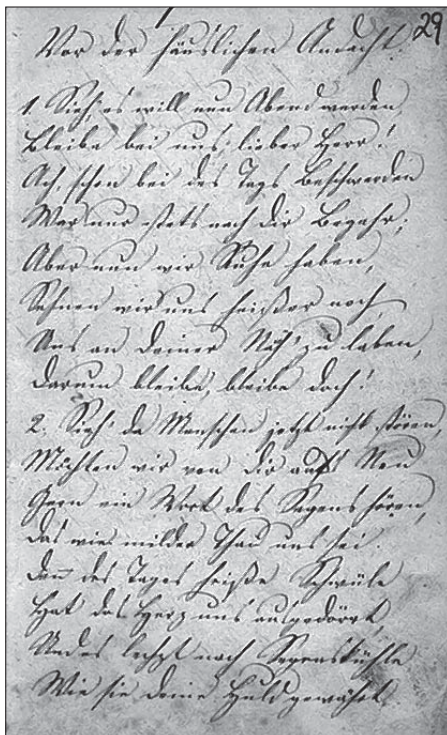 29
Vor der häuslichen Andacht.
1. Sieh, es will nun Abend werden,
Bleibe bei uns, lieber Herr!
Ach, schon bei des Tags Beschwerden
War nur stets nach dir Begehr;
Aber nun wir Ruhe haben,
Sehnen wir uns heißer noch,
Uns an deiner Näh' zu laben,
Darum bleibe, bleibe doch!
2. Sieh' da Menschen jetzt nicht stören,
Möchten wir von dir aufs Neu
Gern ein Wort des Segens hören,
Das wie milder Thau uns sei.
Denn des Tages heiße Schwüle
Hat das Herz uns ausgedörrt,
Und es lechzt nach Segenskühle
Wie sie deine Huld gewährt.